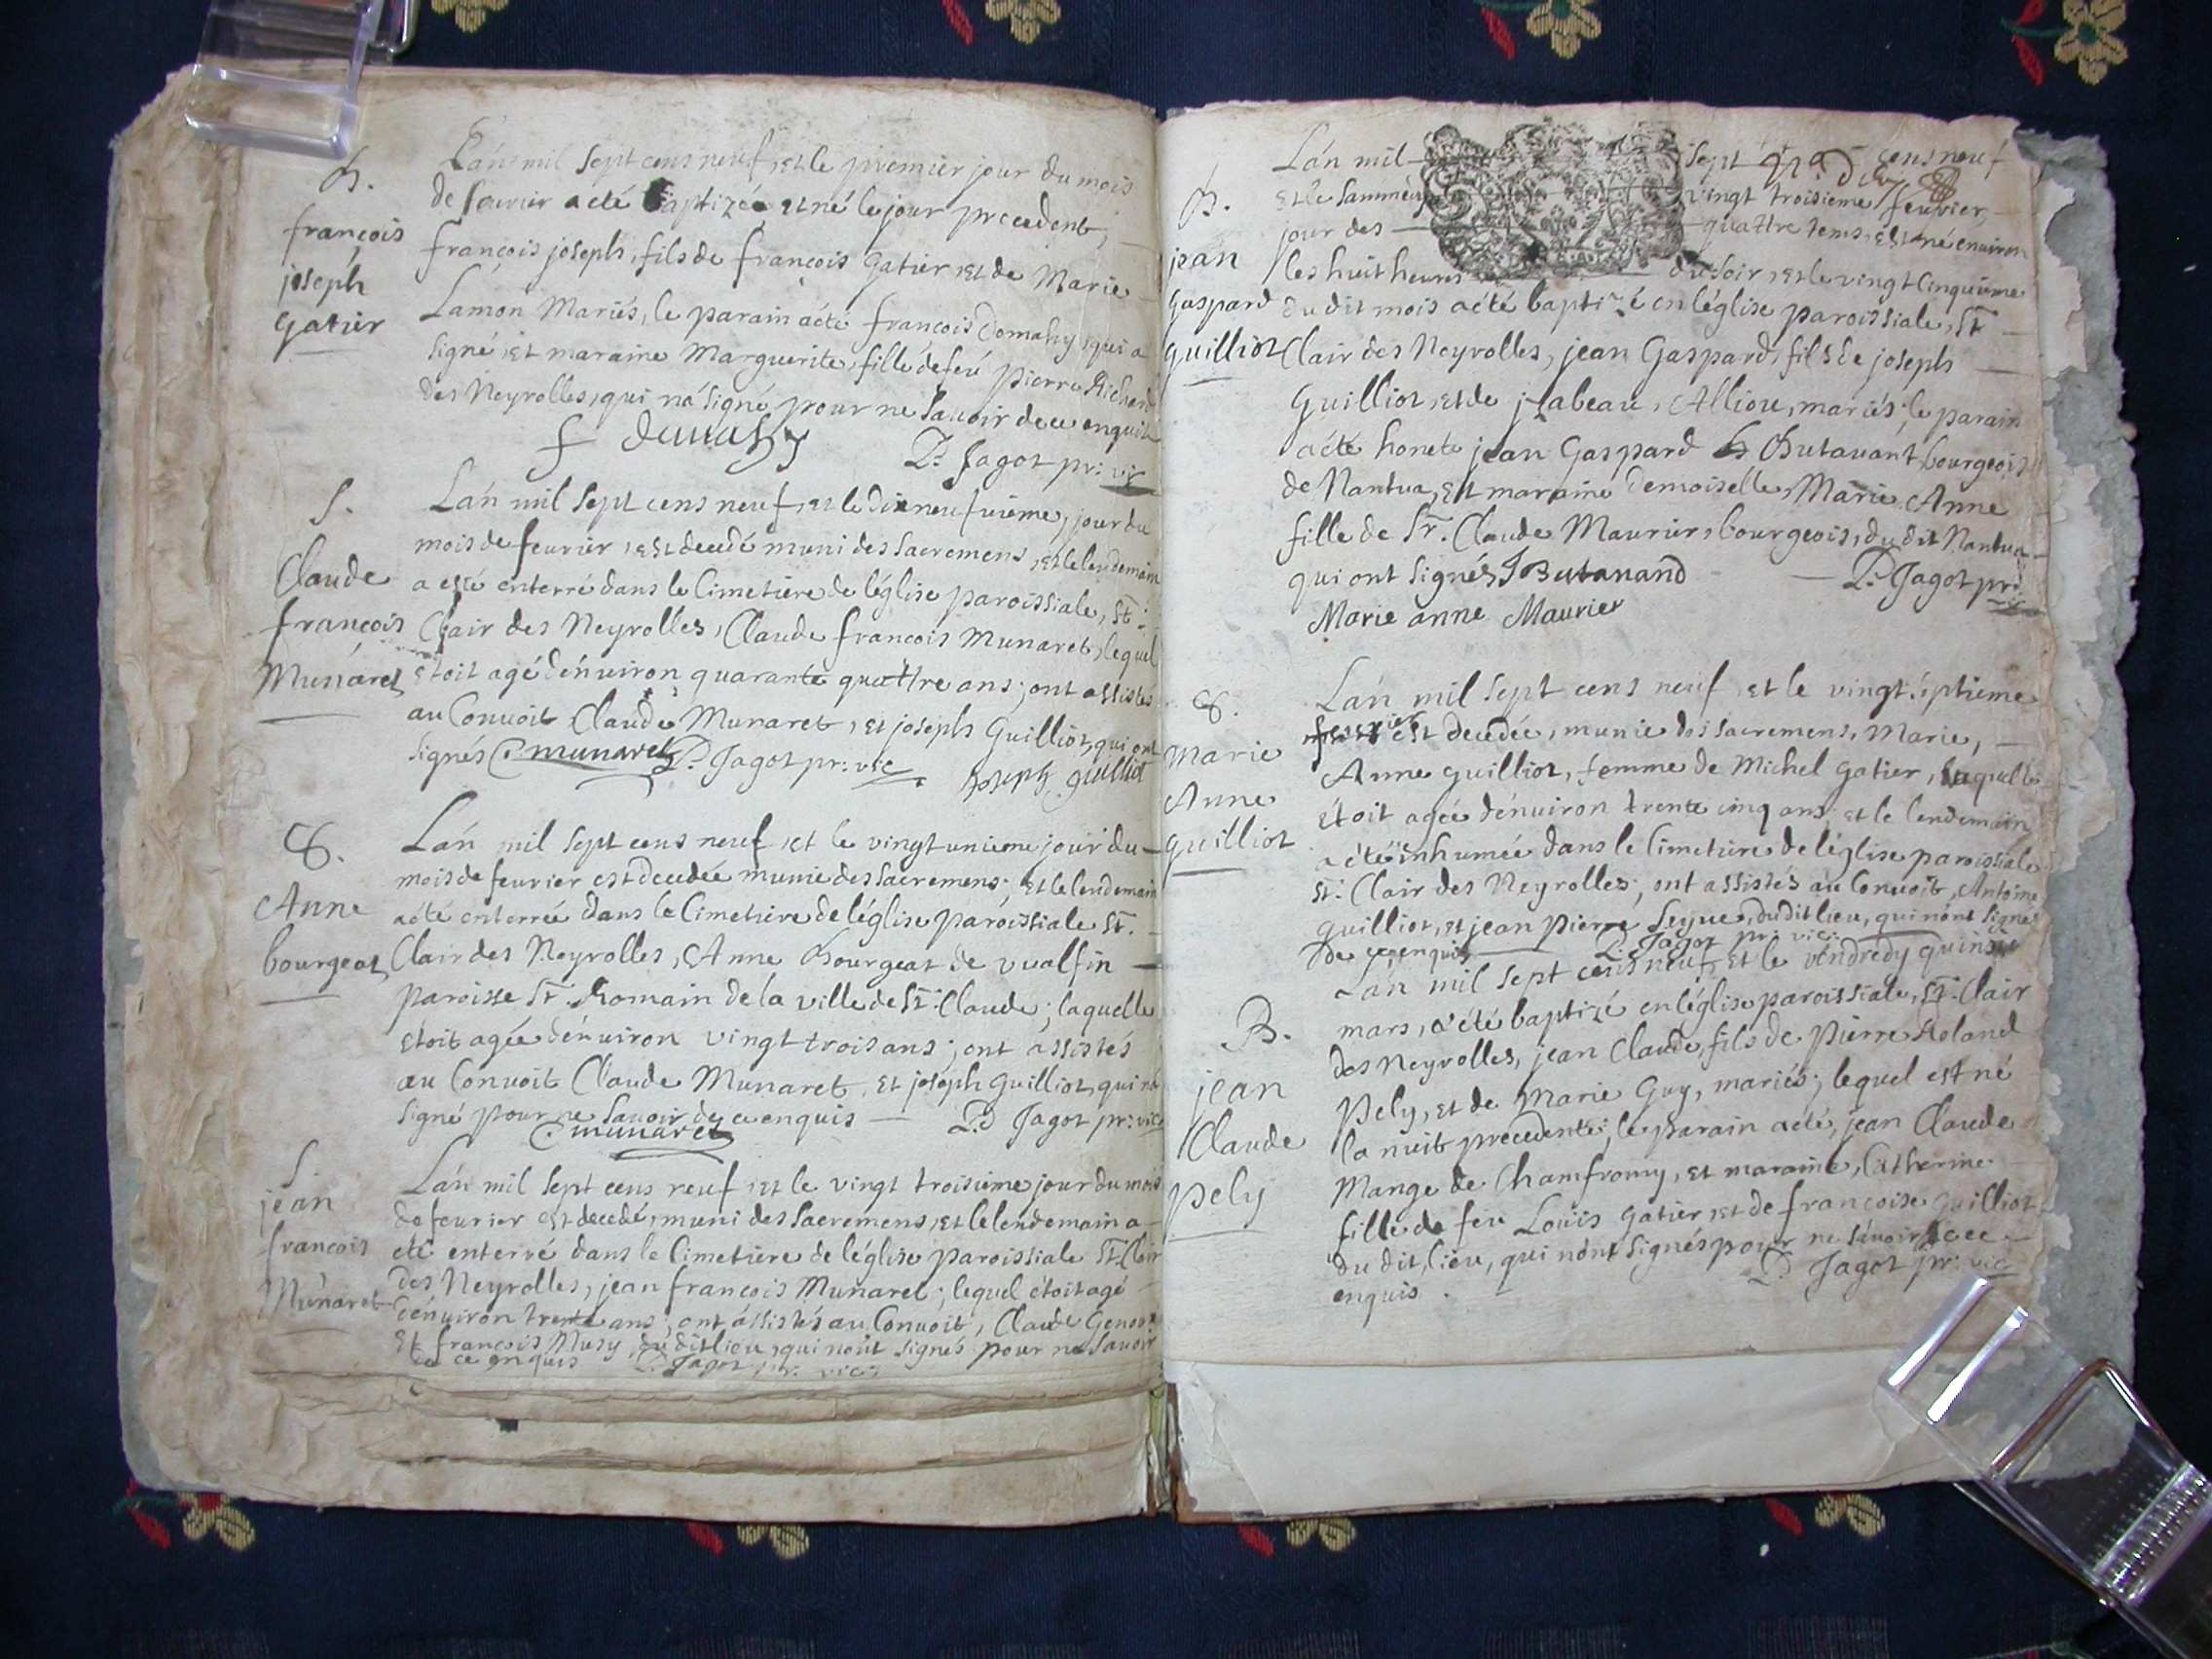 B.
françois
joseph
gatier
Lán mil sept cens neuf, et le premier jour du mois
de fevrier a eté baptizé et né le jour precedent,
françois joseph, fils de françois gatier, et de Marie
Lamon Mariés, le parain a eté françois Domahy, qui a
signé, et maraine Marguerite, fille de feu pierre Richard
des Neyrolles, qui ná signé pour ne savoir de ce enquit
P. Jagot pr: vic
S.
Claude
françois
Munaret
Lán mil sept cens neuf, et le dixneufvième, jour du
mois de fevrier, est decedé muni des sacremens, et le lendemain
a esté enterré dans le Cimetiere de léglise paroissiale, St:
Clair des Neyrolles, Claude françois Munaret, lequel
etoit agé dénviron quarante quattre ans; ont assistés
au Convoit Claude Munaret, et joseph Guilliot, qui ont
signés C. munaret P. Jagot pr: vic joseph guilliot
S.
Anne
bourgeat
Lán mil sept cens neuf, et le vingt unieme jour du
mois de fevrier est decedée munie des sacremens; et le lendemain
a eté enterrée dans le Cimetiere de léglise paroissiale St.
Clair des Neyrolles, Anne Bourgeat de vualfin
paroisse St: Romain de la ville de St: Claude; laquelle
etoit agée dénviron vingt trois ans; ont assistés
au Convoit Claude Munaret, et joseph Guilliot, qui ná
signé pour ne savoir de ce enquis P. Jagot pr: vic
C. munaret
S.
jean
françois
Munaret
Lán mil sept cens neuf, et le vingt troisieme jour du mois
de fevrier est decedé, muni des sacremens, et le lendemain a
eté enterré dans le Cimetiere de léglise paroissiale St: Clair
des Neyrolles, jean françois Munaret; lequel étoit agé
dénviron trente ans; ont assistés au Convoit, Claude
Et françois Musy, du dit lieu, qui nónt signés pour ne savoir
de ce enquis P. Jagot pr: vic:
B.
jean
Gaspard
guilliot
Lán mil sept cens neuf
et le sammedy vingt troisieme fevrier,
jour des quattre tems, est né environ
les huit heures du soir, et le vingt cinquieme
du dit mois a eté baptizé en léglise paroissiale, St
Clair des Neyrolles, jean Gaspard, fils de joseph
Guilliot, et de jsabeau, Alliou, mariés; le parain
a eté honete jean Gaspard Butavant bourgeois
de Nantua, et maraine Demoiselle, Marie Anne
fille de Sr. Claude Maurier, bourgeois, du dit Nantua
qui ont signés J Butavand P. Jagot pr:
Marie anne Maurier
S.
Marie
Anne
guilliot
Lán mil sept cens neuf et le vingt séptieme
fevrier est decedée, munie des sacremens, Marie,
Anne guilliot, femme de Michel gatier, laquelle
étoit agée dénviron trente cinq ans; et le lendemain
a eté inhumée dans le Cimetiere de léglise paroissiale
St: Clair des Neyrolles; ont assistés au Convoit, Antoine
guilliot, et jean pierre Seyve, du dit lieu, qui nónt signé
de ce enquis P. Jagot pr: vic:
B.
jean
Claude
pely
Lán mil sept cens neuf, et le vendredy quinse
mars, a été baptizé en léglise paroissiale, St: Clair
des Neyrolles, jean Claude, fils de pierre Roland
pely, et de Marie Guy, mariés; lequel est né
la nuit precedente; le parain a eté, jean Claude
Mange de Chamfromy, et maraine, Catherine
fille de feu Loüis gatier, et de françoise guilliot
du dit, lieu, qui nónt signés pour ne sávoir de ce
enquis. P. Jagot pr: vic